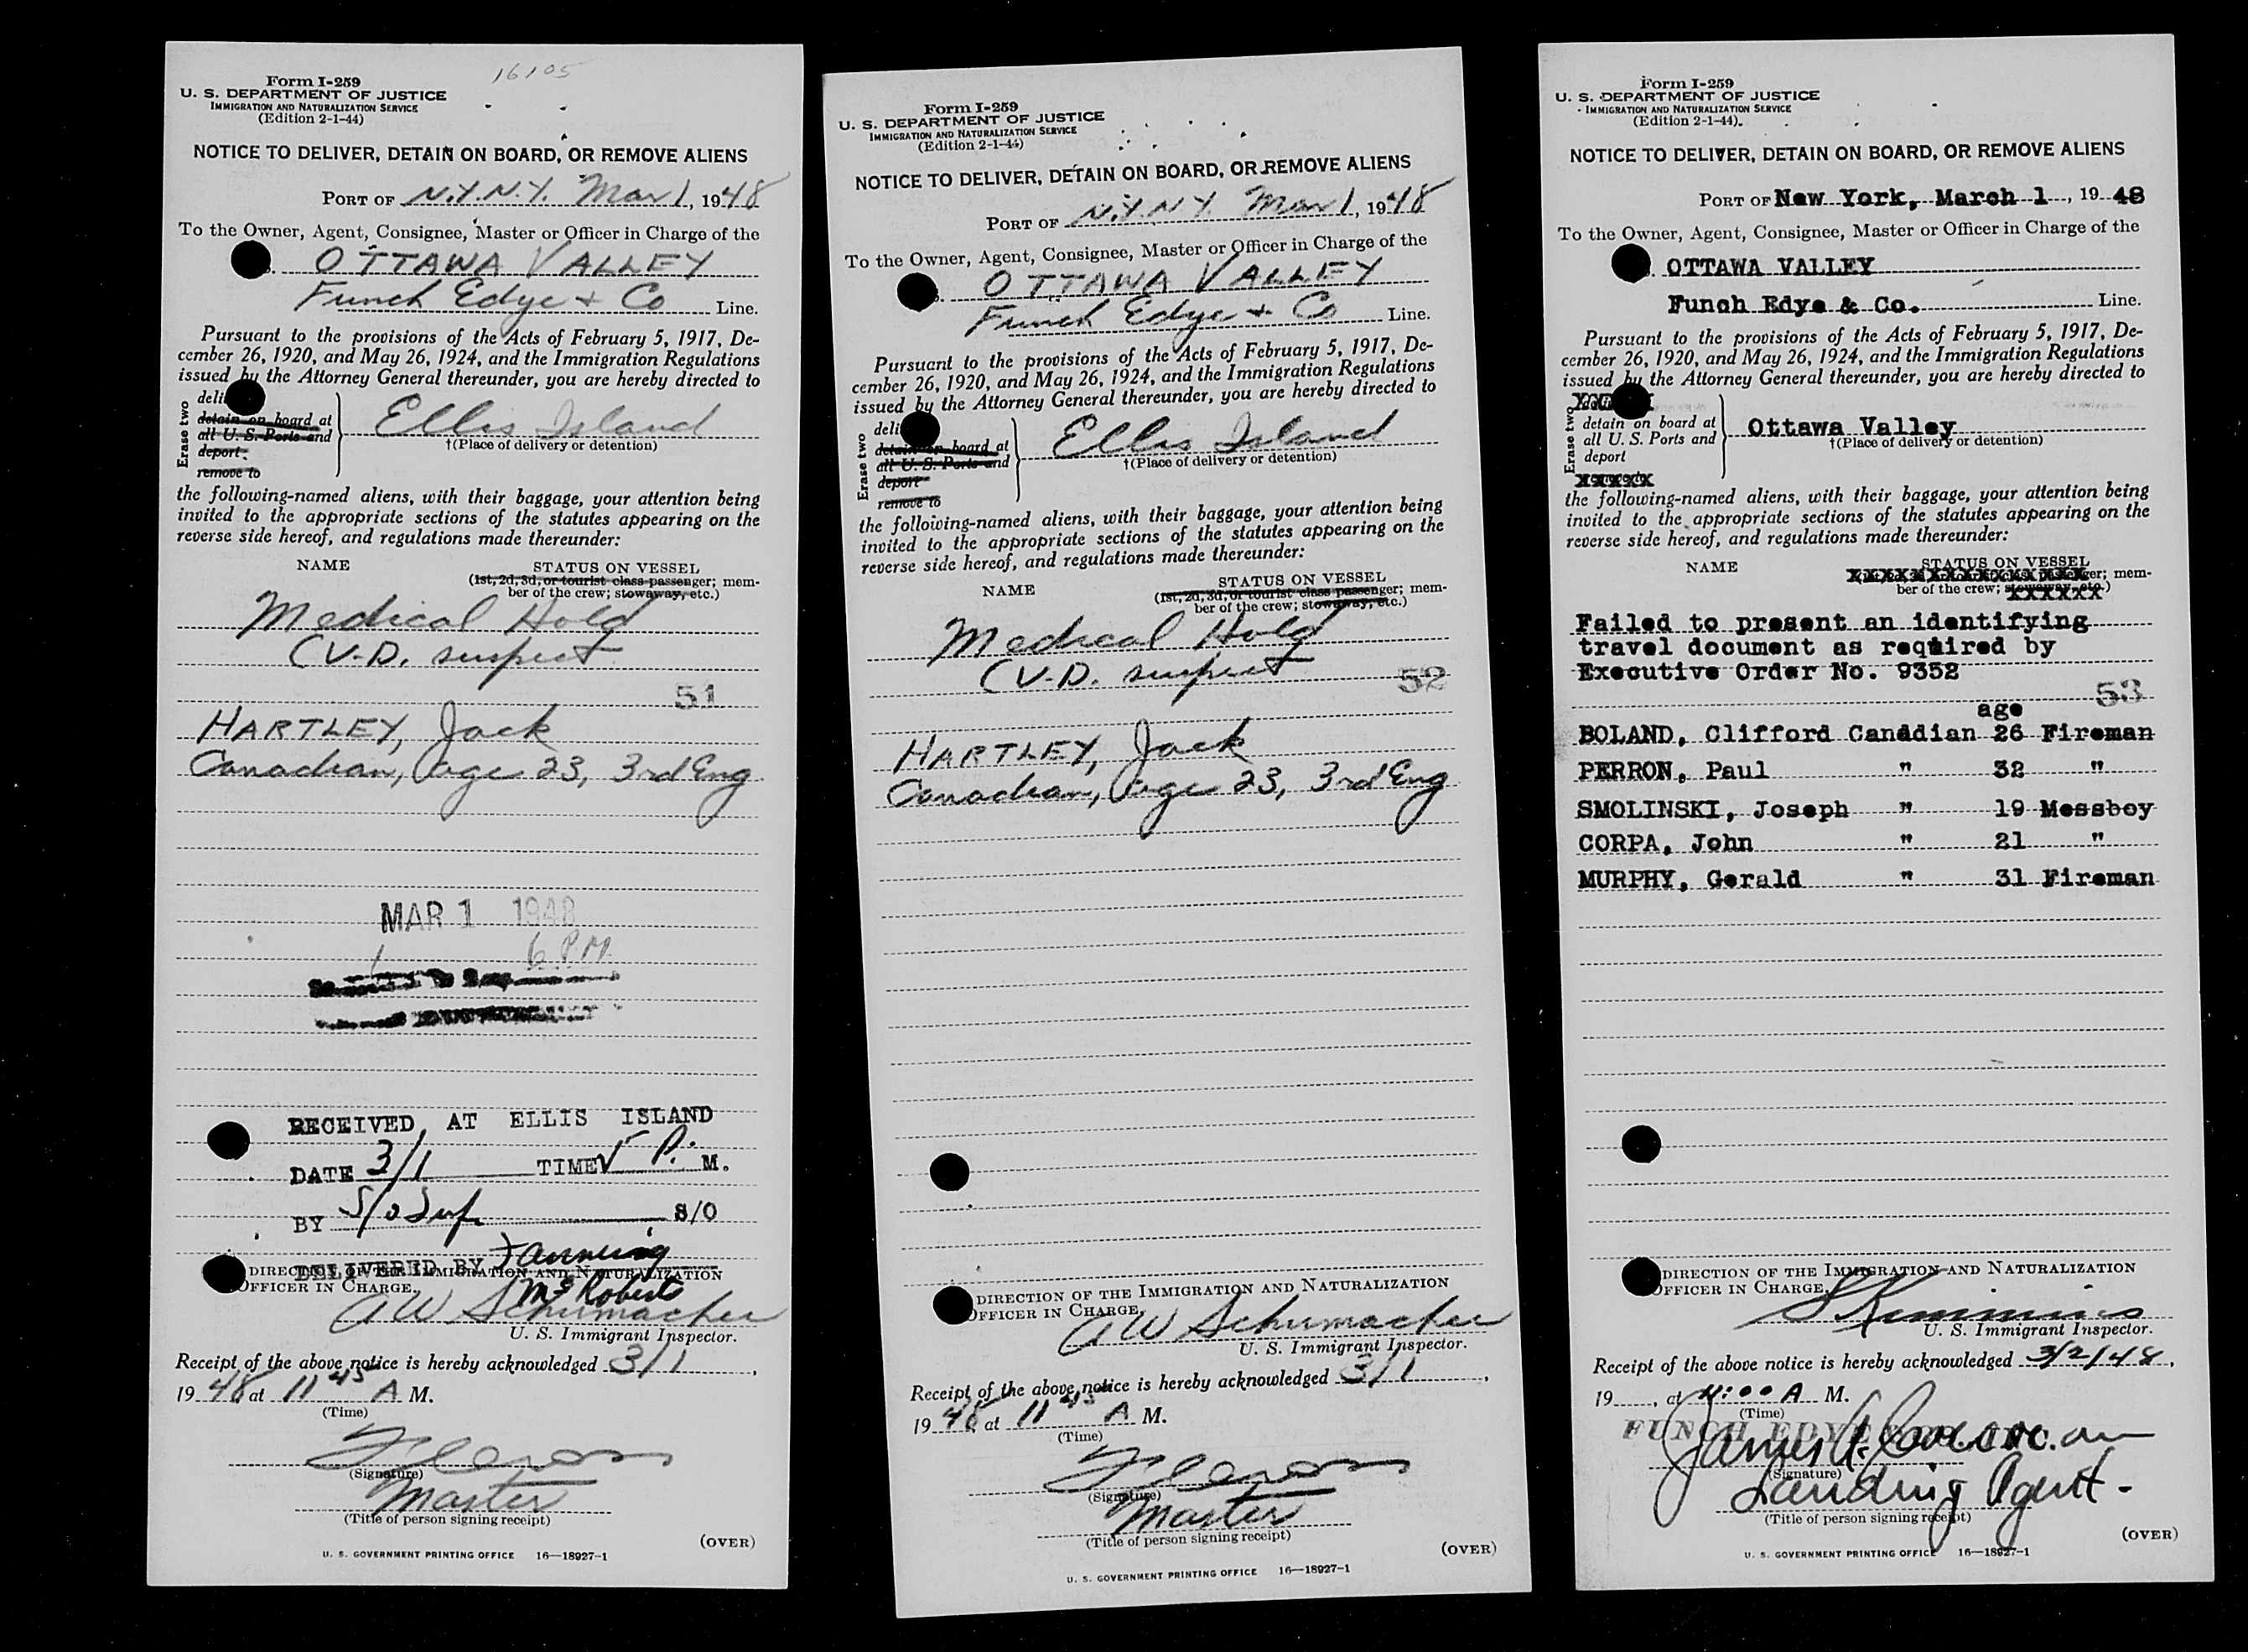 16105
Form I-259
U. S. DEPARTMENT OF JUSTICE
IMMIGRATION AND NATURALIZATION SERVICE
(Edition 2-1-44)
NOTICE TO DELIVER, DETAIN ON BOARD, OR REMOVE ALIENS
PORT OF N.Y.N.Y. Mar 1, 1948
To the Owner, Agent, Consignee, Master or Officer in Charge of the
OTTAWA VALLEY
Funch Edye + Co Line.
Pursuant to the provisions of the Acts of February 5, 1917, De-
cember 26, 1920, and May 26, 1924, and the Immigration Regulations
issued by the Attorney General thereunder, you are hereby directed to
Erase two
deli
detain on board at
all U. S. Ports and
deport
remove to
Ellis Island
†(Place of delivery or detention)
the following-named aliens, with their baggage, your attention being
invited to the appropriate sections of the statutes appearing on the
reverse side hereof, and regulations made thereunder:
NAME STATUS ON VESSEL
(1st, 2d, 3d, or tourist class passenger; mem-
ber of the crew; stowaway, etc.)
Medical Hold
(V.D. suspect
51
HARTLEY, Jack
Canadian, age 23, 3rd Eng
MAR 1 1948
1 6 PM
RECEIVED AT ELLIS ISLAND
DATE 3/1 TIME P. M.
BY S/O S/O
DELIVERED BY Fanning
DIRECTION OF THE IMMIGRATION AND NATURALIZATION
OFFICER IN CHARGE.
McRoberts
AW Schumacher
U. S. Immigrant Inspector.
Receipt of the above notice is hereby acknowledged 3/1,
1948 at 11 45 A M.
(Time)
(Signature)
Master
(Title of person signing receipt)
(OVER)
U. S. GOVERNMENT PRINTING OFFICE 16—18927-1
Form I-259
U. S. DEPARTMENT OF JUSTICE
IMMIGRATION AND NATURALIZATION SERVICE
(Edition 2-1-44)
NOTICE TO DELIVER, DETAIN ON BOARD, OR REMOVE ALIENS
PORT OF N.Y.N.Y. Mar 1, 1948
To the Owner, Agent, Consignee, Master or Officer in Charge of the
OTTAWA VALLEY
Funch Edye + Co Line.
Pursuant to the provisions of the Acts of February 5, 1917, De-
cember 26, 1920, and May 26, 1924, and the Immigration Regulations
issued by the Attorney General thereunder, you are hereby directed to
Erase two
deli
detain on board at
all U. S. Ports and
deport
remove to
Ellis Island
†(Place of delivery or detention)
the following-named aliens, with their baggage, your attention being
invited to the appropriate sections of the statutes appearing on the
reverse side hereof, and regulations made thereunder:
NAME STATUS ON VESSEL
(1st, 2d, 3d, or tourist class passenger; mem-
ber of the crew; stowaway, etc.)
Medical Hold
(V.D. suspect
52
HARTLEY, Jack
Canadian, age 23, 3rd Eng
DIRECTION OF THE IMMIGRATION AND NATURALIZATION
OFFICER IN CHARGE,
AW Schumacher
U. S. Immigrant Inspector.
Receipt of the above notice is hereby acknowledged 3/1,
1948 at 11 45 A M.
(Time)
(Signature)
Master
(Title of person signing receipt)
(OVER)
U. S. GOVERNMENT PRINTING OFFICE 16—18927-1
Form I-259
U. S. DEPARTMENT OF JUSTICE
IMMIGRATION AND NATURALIZATION SERVICE
(Edition 2-1-44)
NOTICE TO DELIVER, DETAIN ON BOARD, OR REMOVE ALIENS
PORT OF New York, March 1, 1948
To the Owner, Agent, Consignee, Master or Officer in Charge of the
OTTAWA VALLEY
Funch Edye & Co. Line.
Pursuant to the provisions of the Acts of February 5, 1917, De-
cember 26, 1920, and May 26, 1924, and the Immigration Regulations
issued by the Attorney General thereunder, you are hereby directed to
Erase two
detain on board at
all U. S. Ports and
deport
XXXXX
Ottawa Valley
†(Place of delivery or detention)
the following-named aliens, with their baggage, your attention being
invited to the appropriate sections of the statutes appearing on the
reverse side hereof, and regulations made thereunder:
NAME STATUS ON VESSEL
mem-
ber of the crew;
Failed to present an identifying
travel document as required by
Executive Order No. 9352
53
age
BOLAND, Clifford Canadian 26 Fireman
PERRON, Paul " 32 "
SMOLINSKI, Joseph " 19 Messboy
CORPA, John " 21 "
MURPHY, Gerald " 31 Fireman
DIRECTION OF THE IMMIGRATION AND NATURALIZATION
OFFICER IN CHARGE,
U. S. Immigrant Inspector.
Receipt of the above notice is hereby acknowledged 3/2/48,
19 , at :00 A M.
(Time)
FUNCH EDYE
James
(Signature)
Landing Agent-
(Title of person signing receipt)
(OVER)
U. S. GOVERNMENT PRINTING OFFICE 16—18927-1